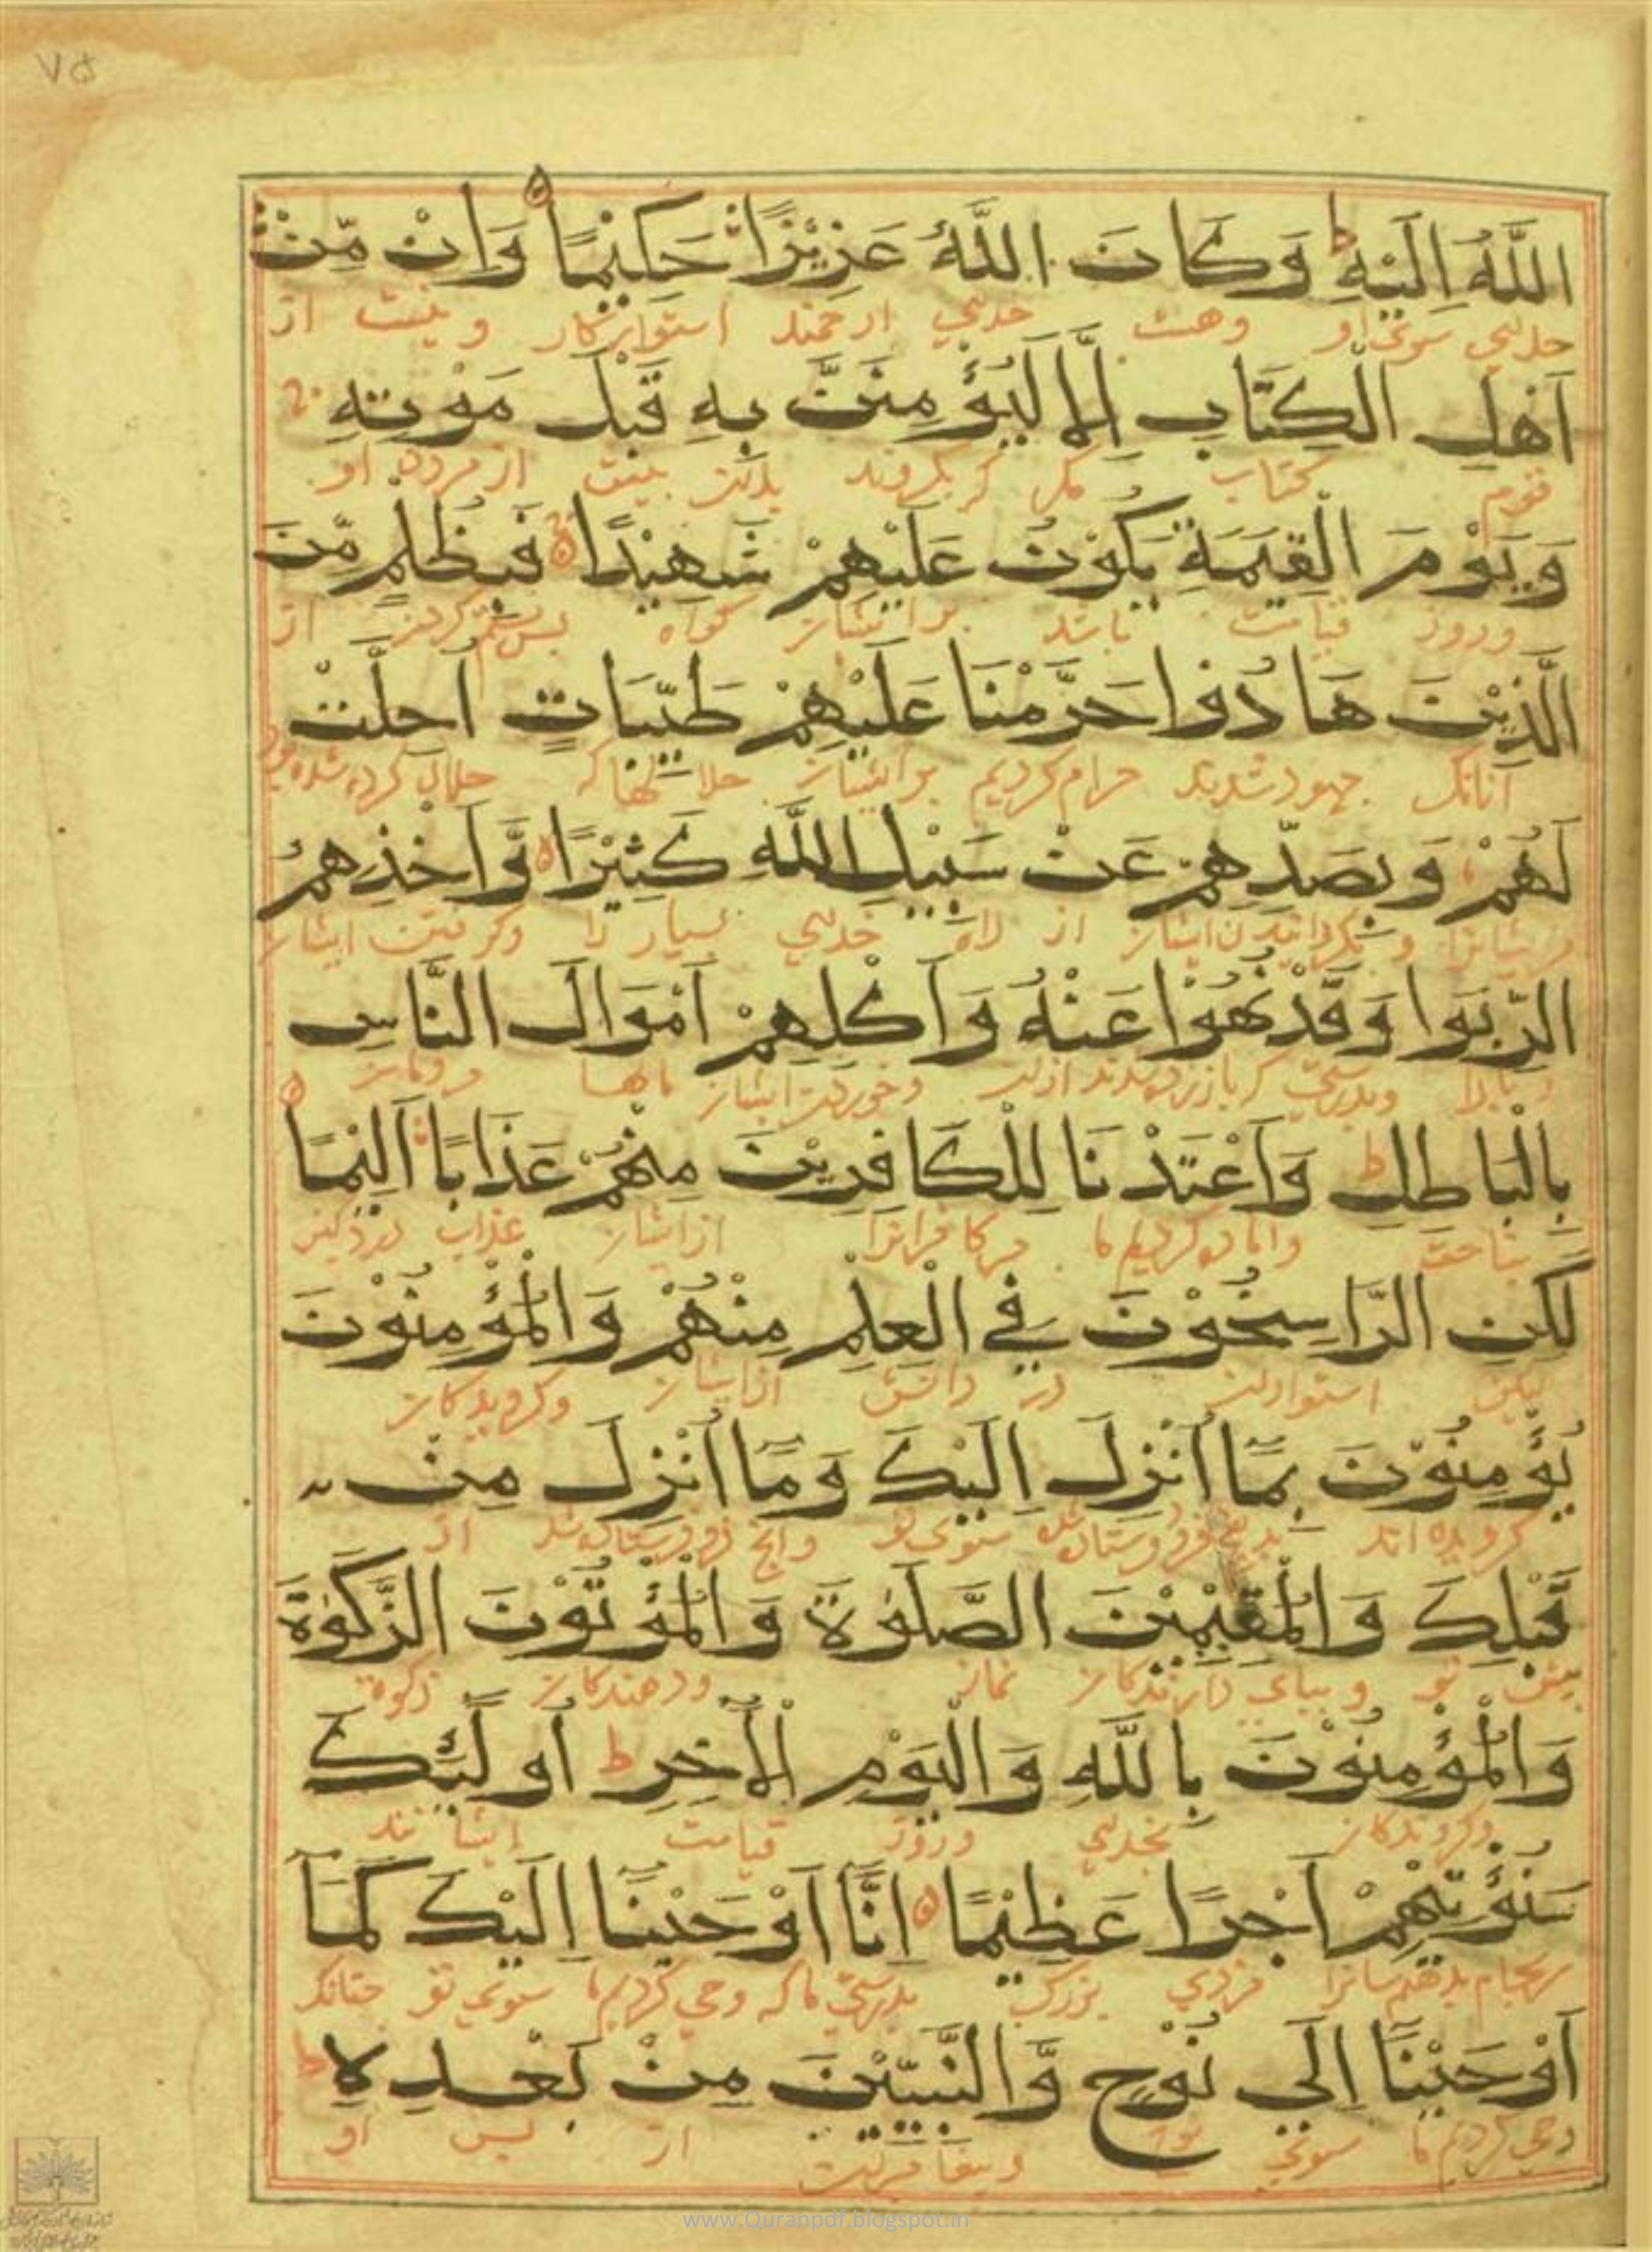 ٧۵
اللَّهُ اِلَيْهِ ط وَكَانَ اللَّهُ عَزِيْزًا حَكِيْمًا وَاِنْ مِّنْ
خدای سوی او وهست خدای ارجمند استوارکار و نیست از
اَهْلِ الْكِتَابِ اِلَّا لَيُؤْمِنَنَّ بِهِ قَبْلَ مَوْتِهِ
کتاب مگر که بگروند پیش از مردن او
وَيَوْمَ الْقِيٰمَةِ يَكُوْنُ عَلَيْهِمْ شَهِيْدًا فَبِظُلْمٍ مِّنَ
وروز قیامت باشد بر ایشان گواه پس بستم کردن از
الَّذِيْنَ هَادُوا حَرَّمْنَا عَلَيْهِمْ طَيِّبَاتٍ اُحِلَّتْ
آنانک جهود شدند حرام کردیم بر ایشان حلالها که حلال کرده شده بود
لَهُمْ وَبِصَدِّهِمْ عَنْ سَبِيْلِ اللَّهِ كَثِيْرًا وَّاَخْذِهِمُ
و بگردانیدن ایشان از راه خدای بسیار را وگرفتن ایشان
الرِّبَوا وَقَدْ نُهُوْا عَنْهُ وَاَكْلِهِمْ اَمْوَالَ النَّاسِ
وبدرستی که باز زده شدند ازان وخوردن ایشان مالها مردمان
بِالْبَاطِلِ ط وَاَعْتَدْنَا لِلْكَافِرِيْنَ مِنْهُمْ عَذَابًا اَلِيْمًا
بناحق واماده کردیم ما مر کافرانرا ازایشان عذاب دردکین
لَكِنِ الرَّاسِخُوْنَ فِي الْعِلْمِ مِنْهُمْ وَالْمُؤْمِنُوْنَ
لیکن استواران در دانش ازایشان وگرویدکان
يُؤْمِنُوْنَ بِمَا اُنْزِلَ اِلَيْكَ وَمَا اُنْزِلَ مِنْ
گرویده اند بدانچ فروفرستاده شده سوی تو وانچ فروفرستاده شد از
قَبْلِكَ وَالْمُقِيْمِيْنَ الصَّلٰوةَ وَالْمُؤْتُوْنَ الزَّكٰوةَ
پیش تو وبپای دارندکان نماز ودهندکان زکوة
وَالْمُؤْمِنُوْنَ بِاللَّهِ وَالْيَوْمِ الْاٰخِرِ ط اُولَٰئِكَ
وگروندکان بخدای وروز قیامت ایشانند
سَنُؤْتِيْهِمْ اَجْرًا عَظِيْمًا اِنَّا اَوْحَيْنَا اِلَيْكَ كَمَا
سرانجام بدهیم ایشانرا مزدی بزرگ بدرستی ما که وحی کردیم ما سوی تو چنانک
اَوْحَيْنَا اِلَي نُوْحٍ وَّالنَّبِيّٖنَ مِنْ بَعْدِهِ ط
وحی کردیم ما سوی نوح وپیغامبران از پس او
www.Quranpdf.blogspot.in